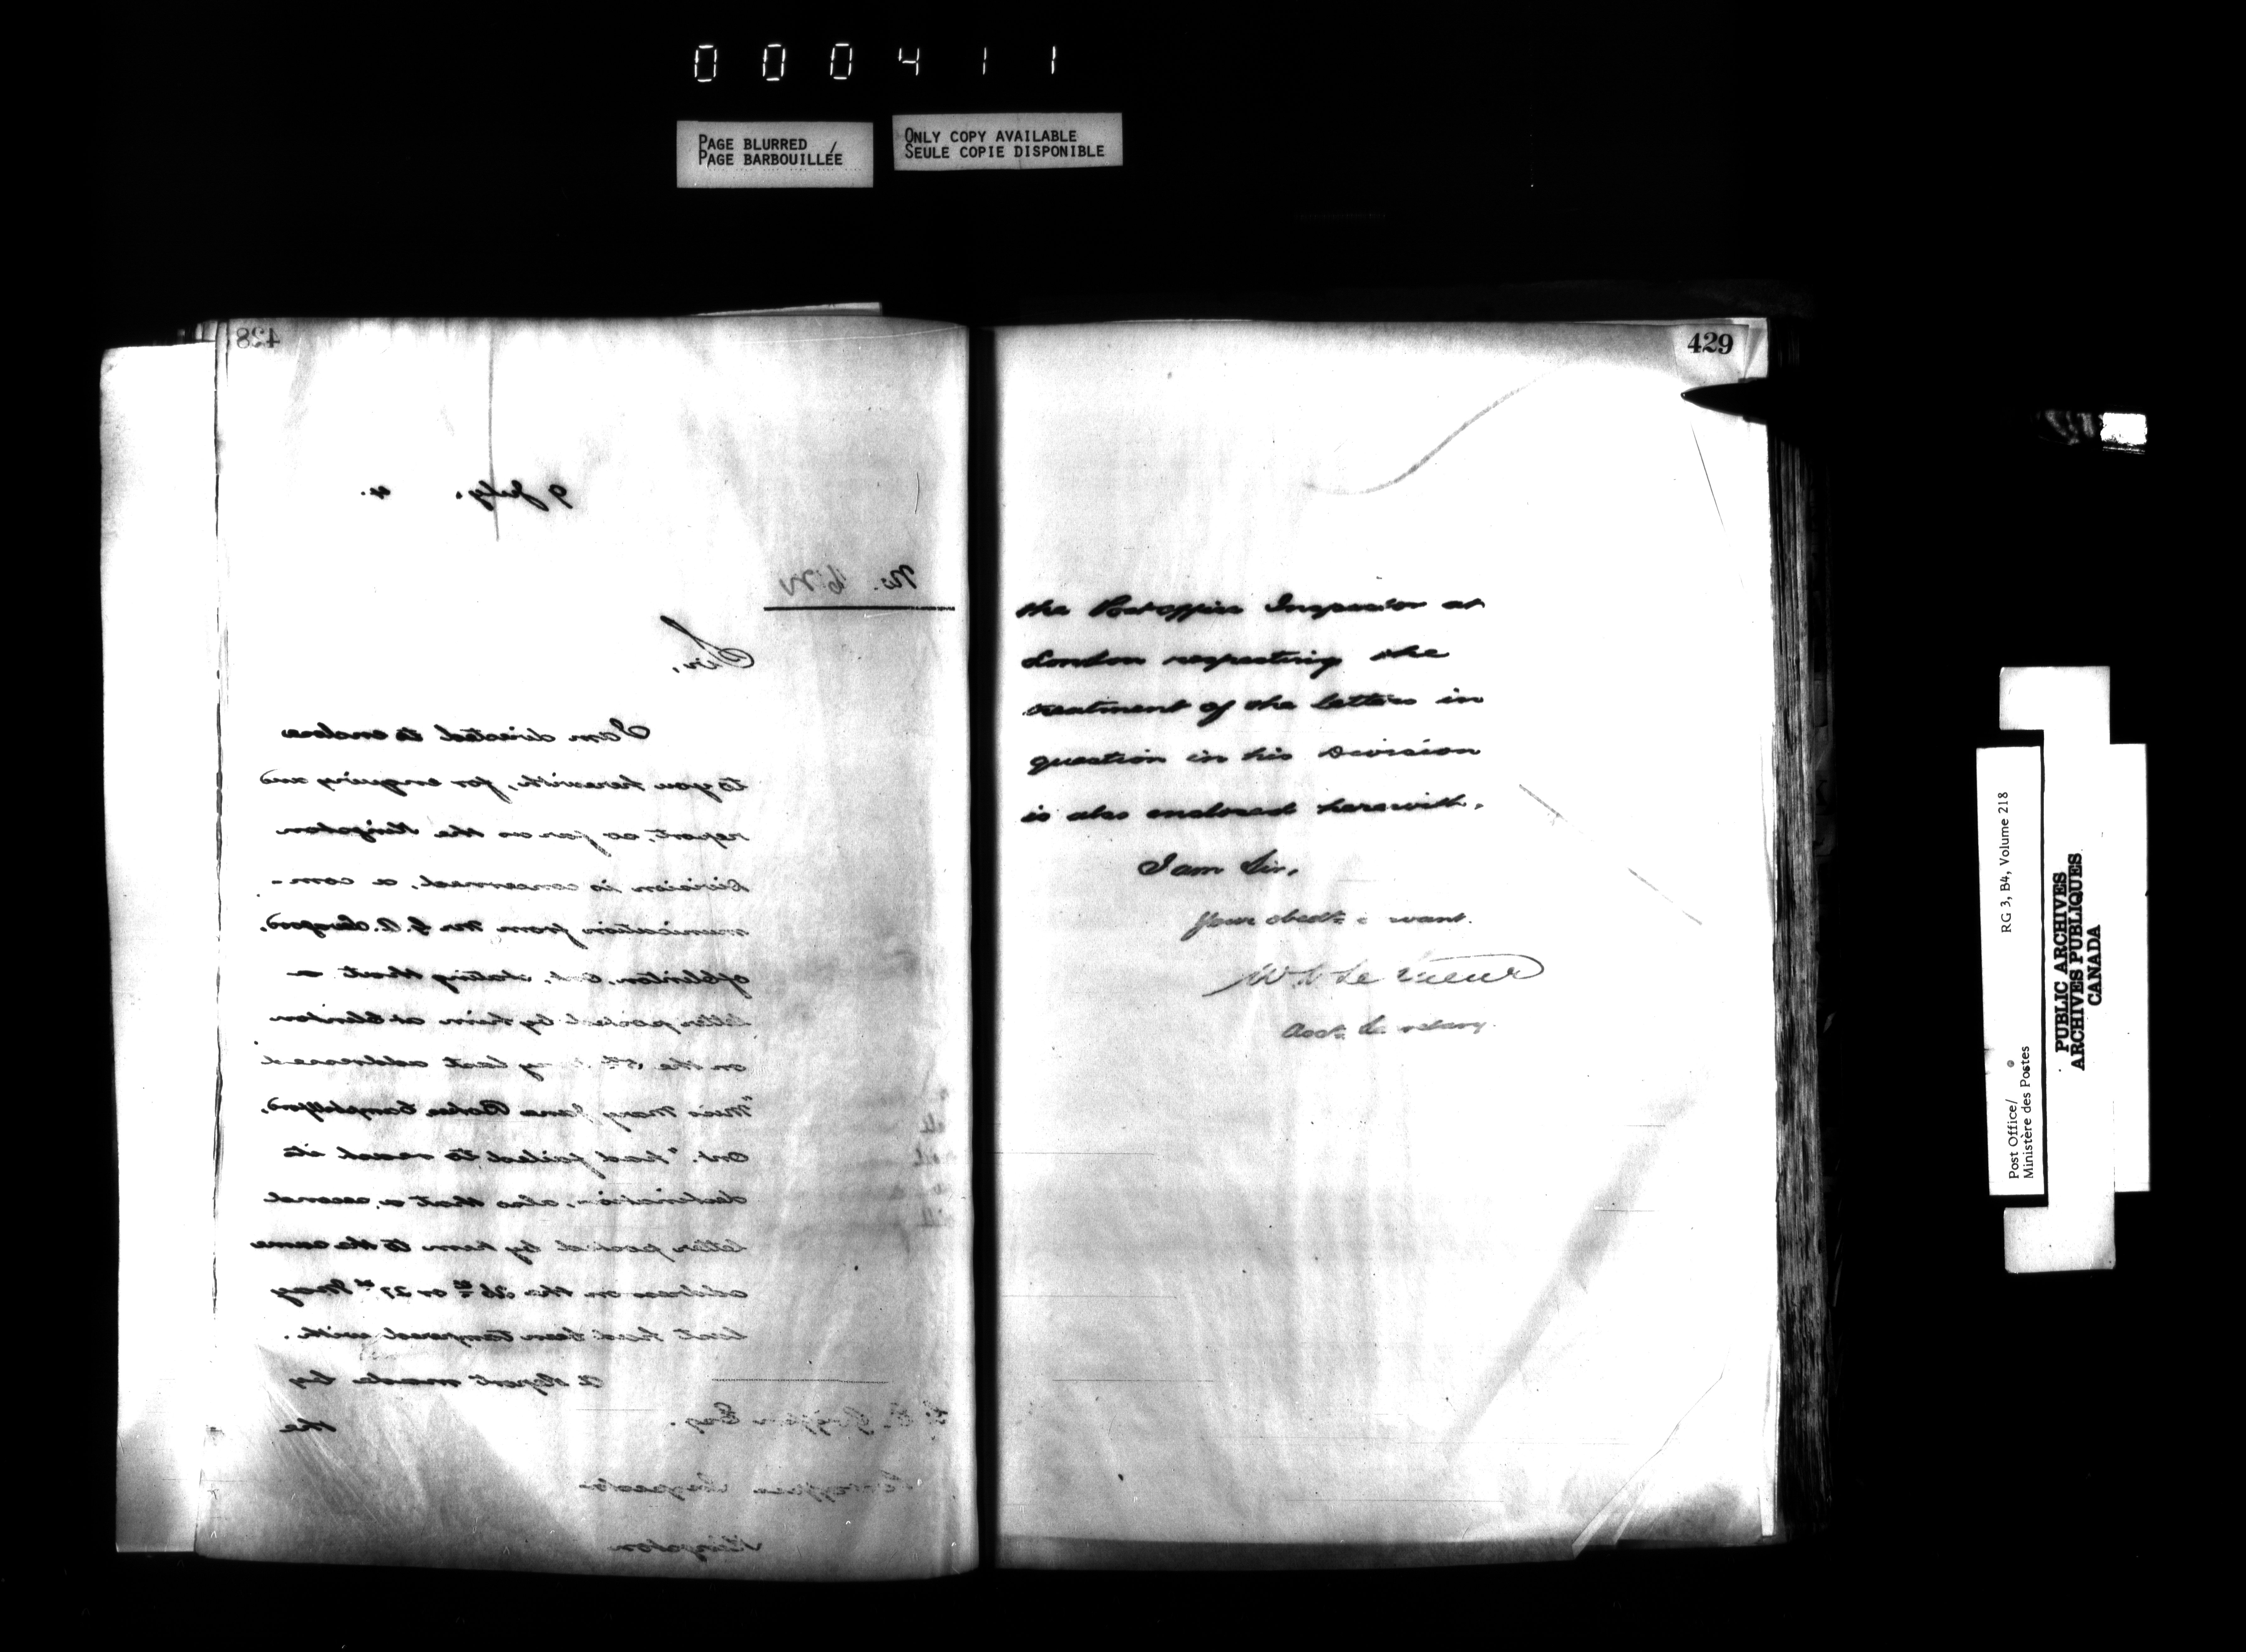 000411
PAGE BLURRED /
PAGE BARBOUILLÉE
ONLY COPY AVAILABLE
SEULE COPIE DISPONIBLE
428
9 July. 4.
No.
Sir,
I am directed to enclose
to you herewith, for enquiry and
report, so far as the Kingston
Division is concerned, a com-
munication from Mr
of Clinton, stating that a
letter posted by him at Clinton
on the last addressed
"Miss Mary Jane Campbellford,
Ont." had failed to reach its
destination, also that a second
letter posted by him to the same
address on the 26th or 27th May
last had been tampered with.
A Report made by
the
Esq.
Inspector
Kingston
429
the Post office Inspector at
London respecting the
treatment of the letters in
question in his Division
is also enclosed herewith.
I am Sir,
Your obedt
W. D. Le Sueur
Asst. Secretary.
Post Office/
Ministère des Postes
RG 3, B4, Volume 218
PUBLIC ARCHIVES
ARCHIVES PUBLIQUES
CANADA